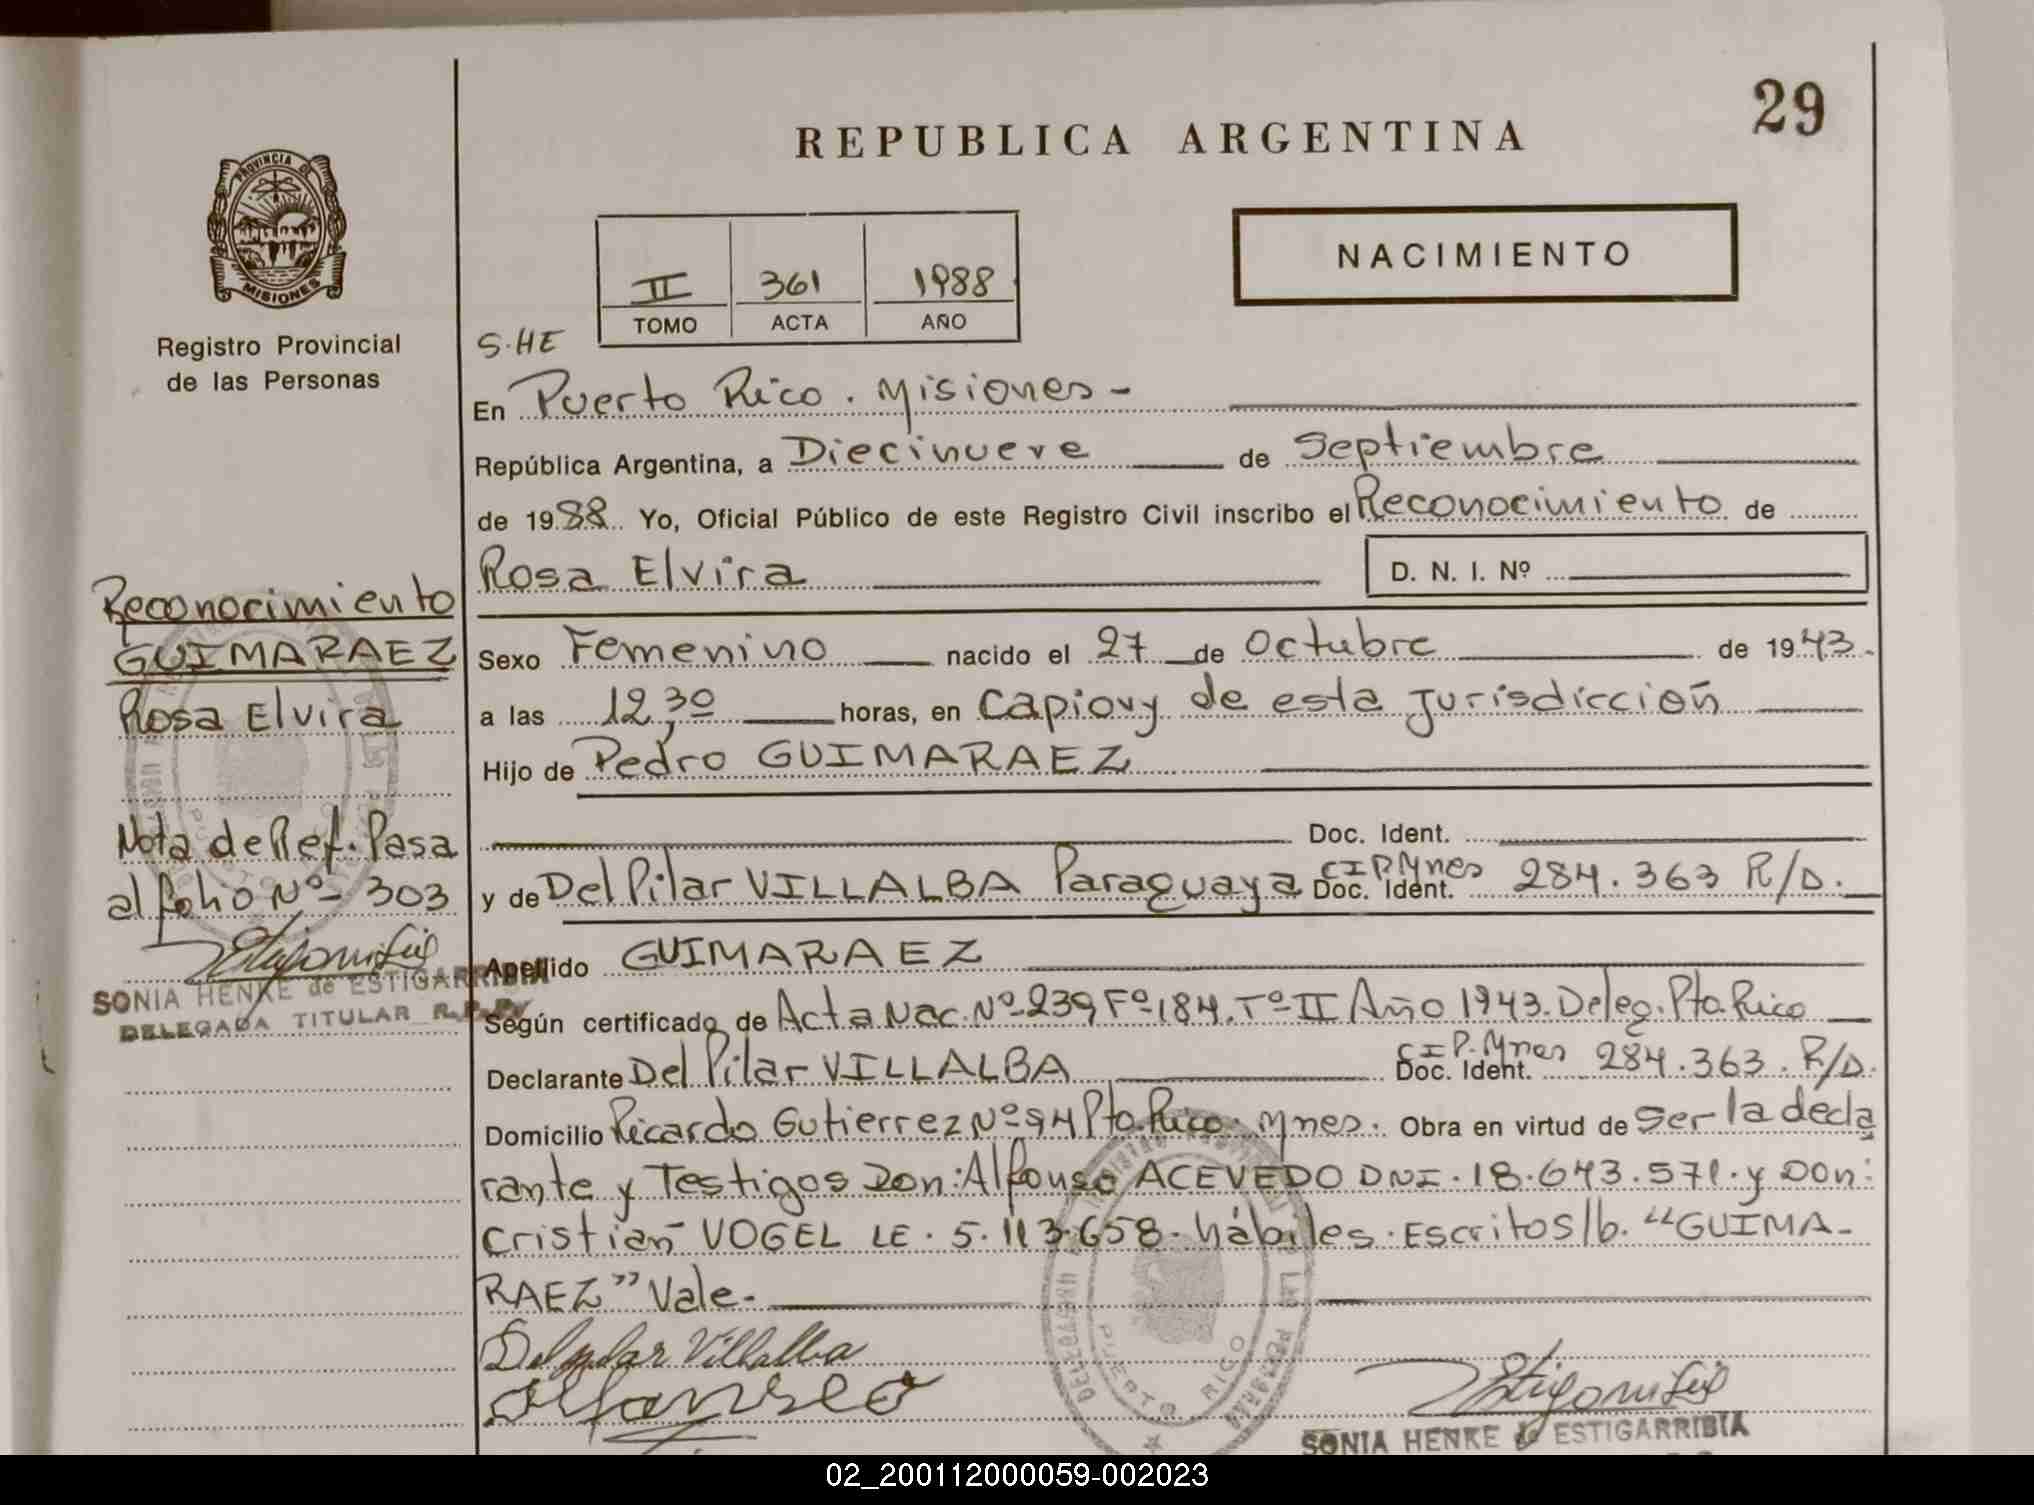 29
REPUBLICA ARGENTINA
PROVINCIA DE
MISIONES
Registro Provincial
de las Personas
NACIMIENTO
II 361 1988
TOMO ACTA AÑO
S.HE
En Puerto Rico. Misiones -
República Argentina, a Diecinueve de Septiembre
de 1988 Yo, Oficial Público de este Registro Civil inscribo el Reconocimiento de
Rosa Elvira D. N. I. Nº
Sexo Femenino nacido el 27 de Octubre de 1943.
a las 12,30 horas, en Capiovy de esta Jurisdicción
Hijo de Pedro GUIMARAEZ
Doc. Ident.
y de Del Pilar VILLALBA Paraguaya CIP.Mnes Doc. Ident. 284.363 R/D.
Apellido GUIMARAEZ
Según certificado de Acta Nac. Nº-239 Fº-184. Tº-II Año 1943. Deleg. Pto. Rico
Declarante Del Pilar VILLALBA CIP. Mnes Doc. Ident. 284.363. R/D.
Domicilio Ricardo Gutierrez Nº 94 Pto. Rico. Mnes. Obra en virtud de Ser la decla
rante y Testigos Don: Alfonso ACEVEDO DNI. 18.643.571. y Don:
Cristian VOGEL LE. 5.113.658. hábiles. Escritos/b. "GUIMA-
RAEZ" Vale.
Del pilar Villalba
Alfonseo
SONIA HENKE de ESTIGARRIBIA
PUERTO RICO
Reconocimiento
GUIMARAEZ
Rosa Elvira
Nota de Ref. Pasa
al folio Nº- 303
SONIA HENKE de ESTIGARRIBIA
DELEGADA TITULAR R.P.P.
02_200112000059-002023